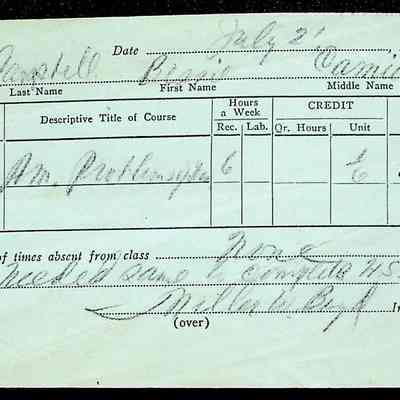 Date July 21
Bessie
Last Name First Name Middle Name
Hours a Week CREDIT
Descriptive Title of Course Rec. Lab. Qr. Hours Unit
Am. Problems 6
of times absent from class None
Needed same to complete 45
Miller W. Boyd In
(over)